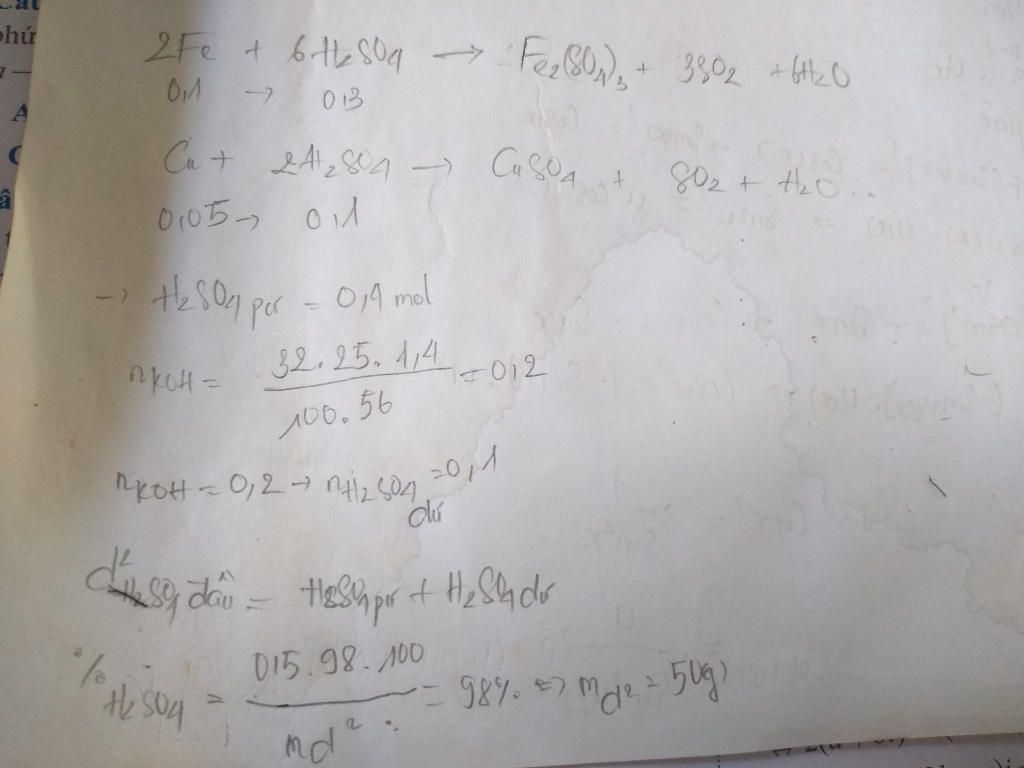 2Fe + 6H₂SO₄ → Fe₂(SO₄)₃ + 3SO₂ + 6H₂O
0,1 → 0,3
Cu + 2H₂SO₄ → CuSO₄ + SO₂ + H₂O
0,05 → 0,1
→ H₂SO₄ pư = 0,4 mol
nKOH = 32.25.1,4 / 100.56 = 0,2
nKOH = 0,2 → nH₂SO₄ dư = 0,1
d² H₂SO₄ đầu = H₂SO₄ pư + H₂SO₄ dư
% H₂SO₄ = 0,5.98.100 / md² = 98% => md² = 50g